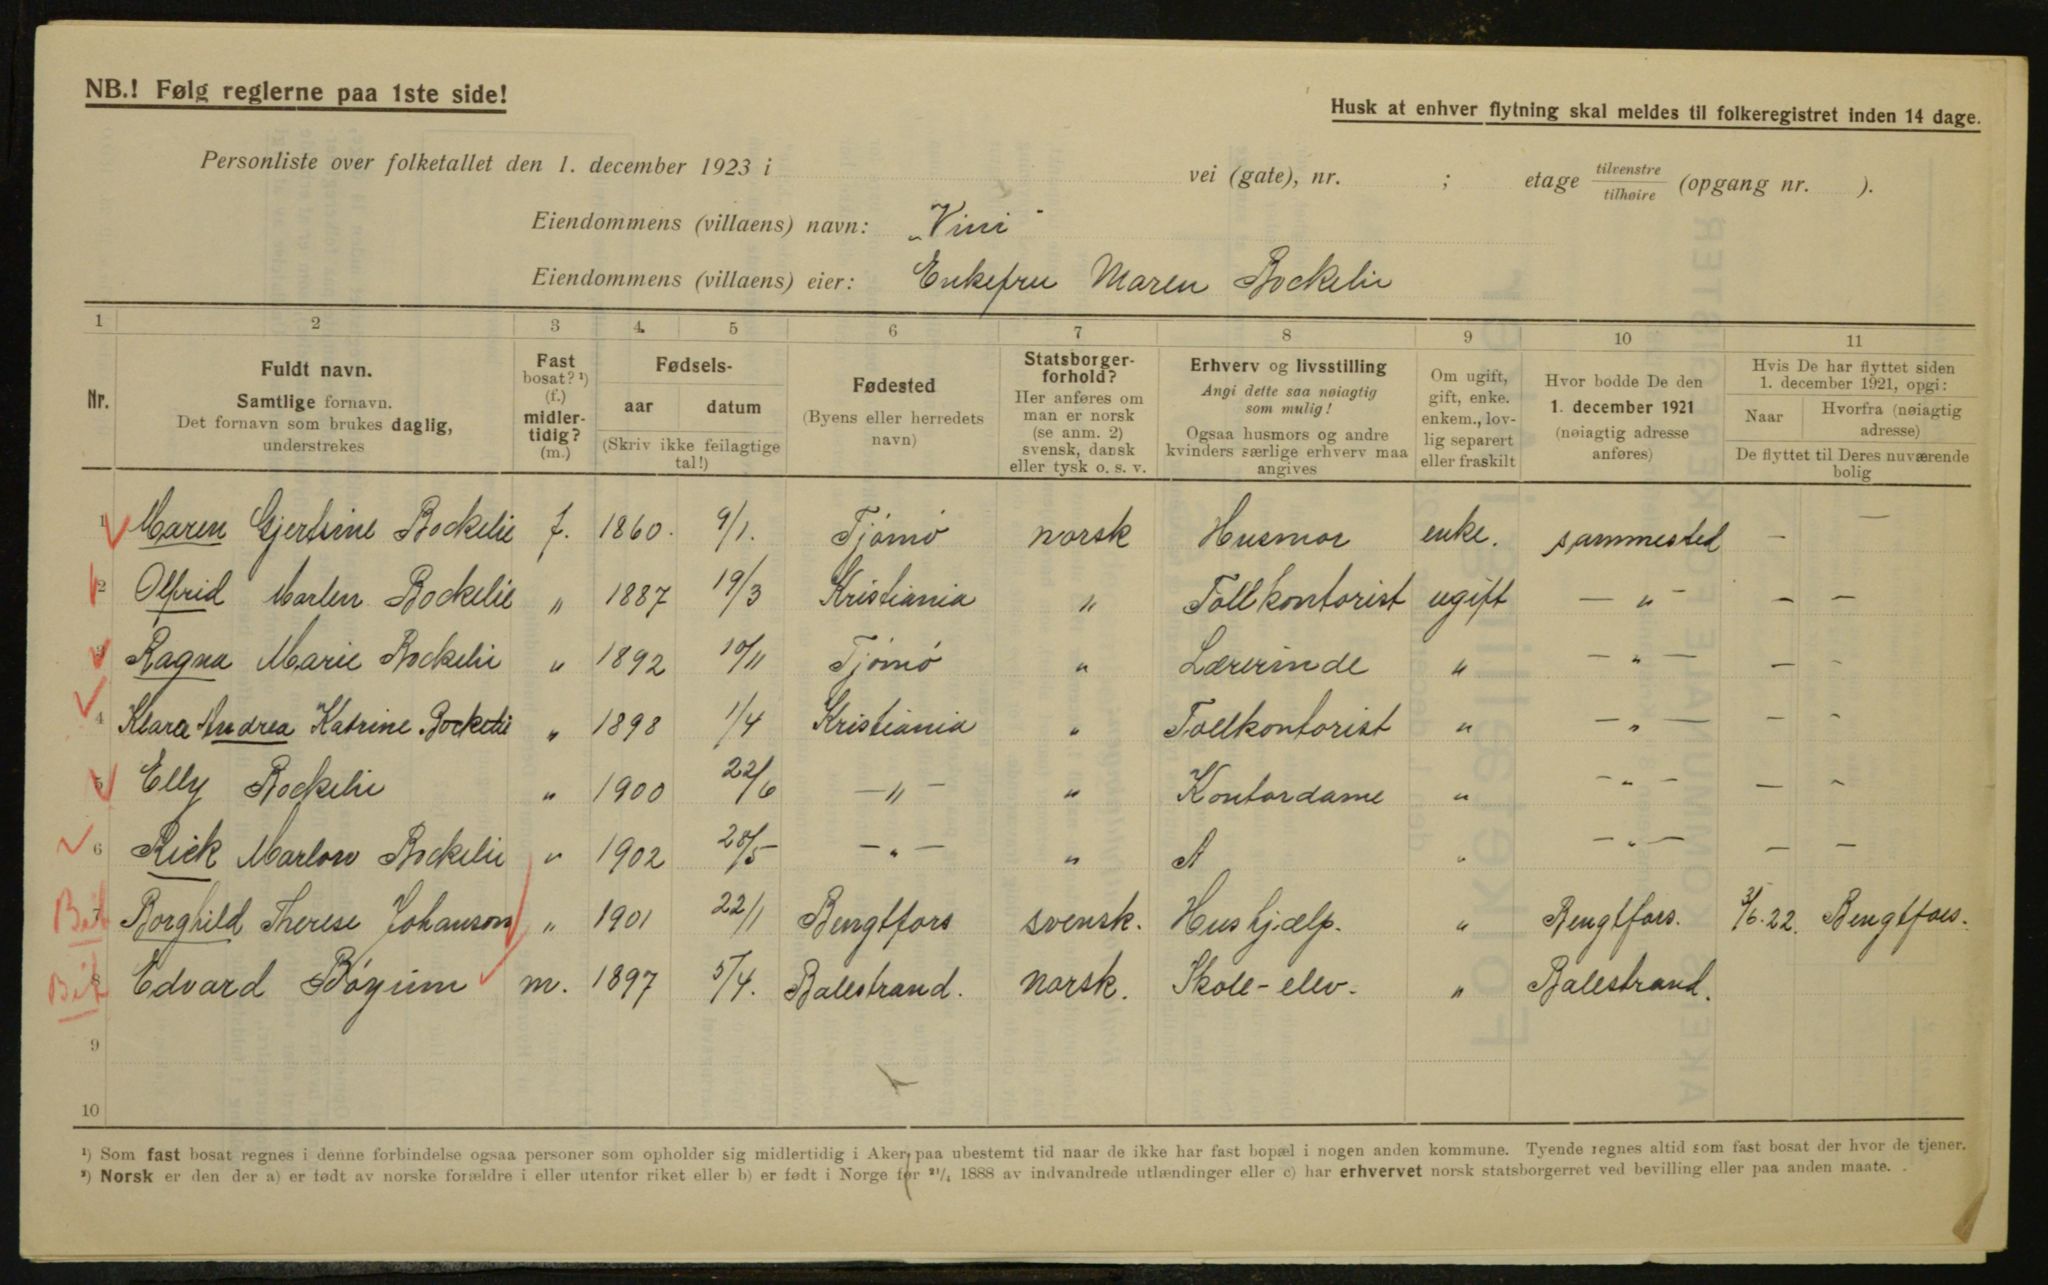 NB.! Følg reglerne paa 1ste side!
Husk at enhver flytning skal meldes til folkeregistret inden 14 dage.
Personliste over folketallet den 1. december 1923 i vei (gate), nr. ; etage tilvenstre/tilhøire (opgang nr. ).
Eiendommens (villaens) navn: „Vini"
Eiendommens (villaens) eier: Enkefru Maren Bockelie
1 2 3 4. 5 6 7 8 9 10 11
Nr.
Fuldt navn.
Samtlige fornavn.
Det fornavn som brukes daglig,
understrekes
Fast
bosat? ¹)
(f.)
midler-
tidig?
(m.)
Fødsels-
aar datum
(Skriv ikke feilagtige
tal!)
Fødested
(Byens eller herredets
navn)
Statsborger-
forhold?
Her anføres om
man er norsk
(se anm. 2)
svensk, dansk
eller tysk o. s. v.
Erhverv og livsstilling
Angi dette saa nøiagtig
som mulig!
Ogsaa husmors og andre
kvinders særlige erhverv maa
angives
Om ugift,
gift, enke.
enkem., lov-
lig separert
eller fraskilt
Hvor bodde De den
1. december 1921
(nøiagtig adresse
anføres)
Hvis De har flyttet siden
1. december 1921, opgi:
Naar Hvorfra (nøiagtig
adresse)
De flyttet til Deres nuværende
bolig
1 Maren Gjertsine Bockelie f. 1860. 9/1. Tjømø norsk Husmor enke. sammested — —
2 Olfrid Marlen Bockelie „ 1887 19/3 Kristiania „ Tollkontorist ugift — „ — — —
3 Ragna Marie Bockelie „ 1892 10/11 Tjømø „ Lærerinde „ — „ — — -
4 Klara Andrea Katrine Bockelie „ 1898 1/4 Kristiania „ Tollkontorist „ — „ — — -
5 Elly Bockelie „ 1900 22/6 — „ — „ Kontordame „ — „ — — -
6 Rick Marlow Bockelie „ 1902 28/5 — „ — „ „ — „ — — —
7 Borghild Therese Johanson „ 1901 22/1 Bengtfors svensk. Hushjælp. „ Bengtfors. 3/6.22. Bengtfors.
8 Edvard Bøyum m. 1897 5/4. Balestrand. norsk. Skole-elev. „ Balestrand.
9
10
¹) Som fast bosat regnes i denne forbindelse ogsaa personer som opholder sig midlertidig i Aker paa ubestemt tid naar de ikke har fast bopæl i nogen anden kommune. Tyende regnes altid som fast bosat der hvor de tjener.
²) Norsk er den der a) er født av norske forældre i eller utenfor riket eller b) er født i Norge før ²¹/₄ 1888 av indvandrede utlændinger eller c) har erhvervet norsk statsborgerret ved bevilling eller paa anden maate.